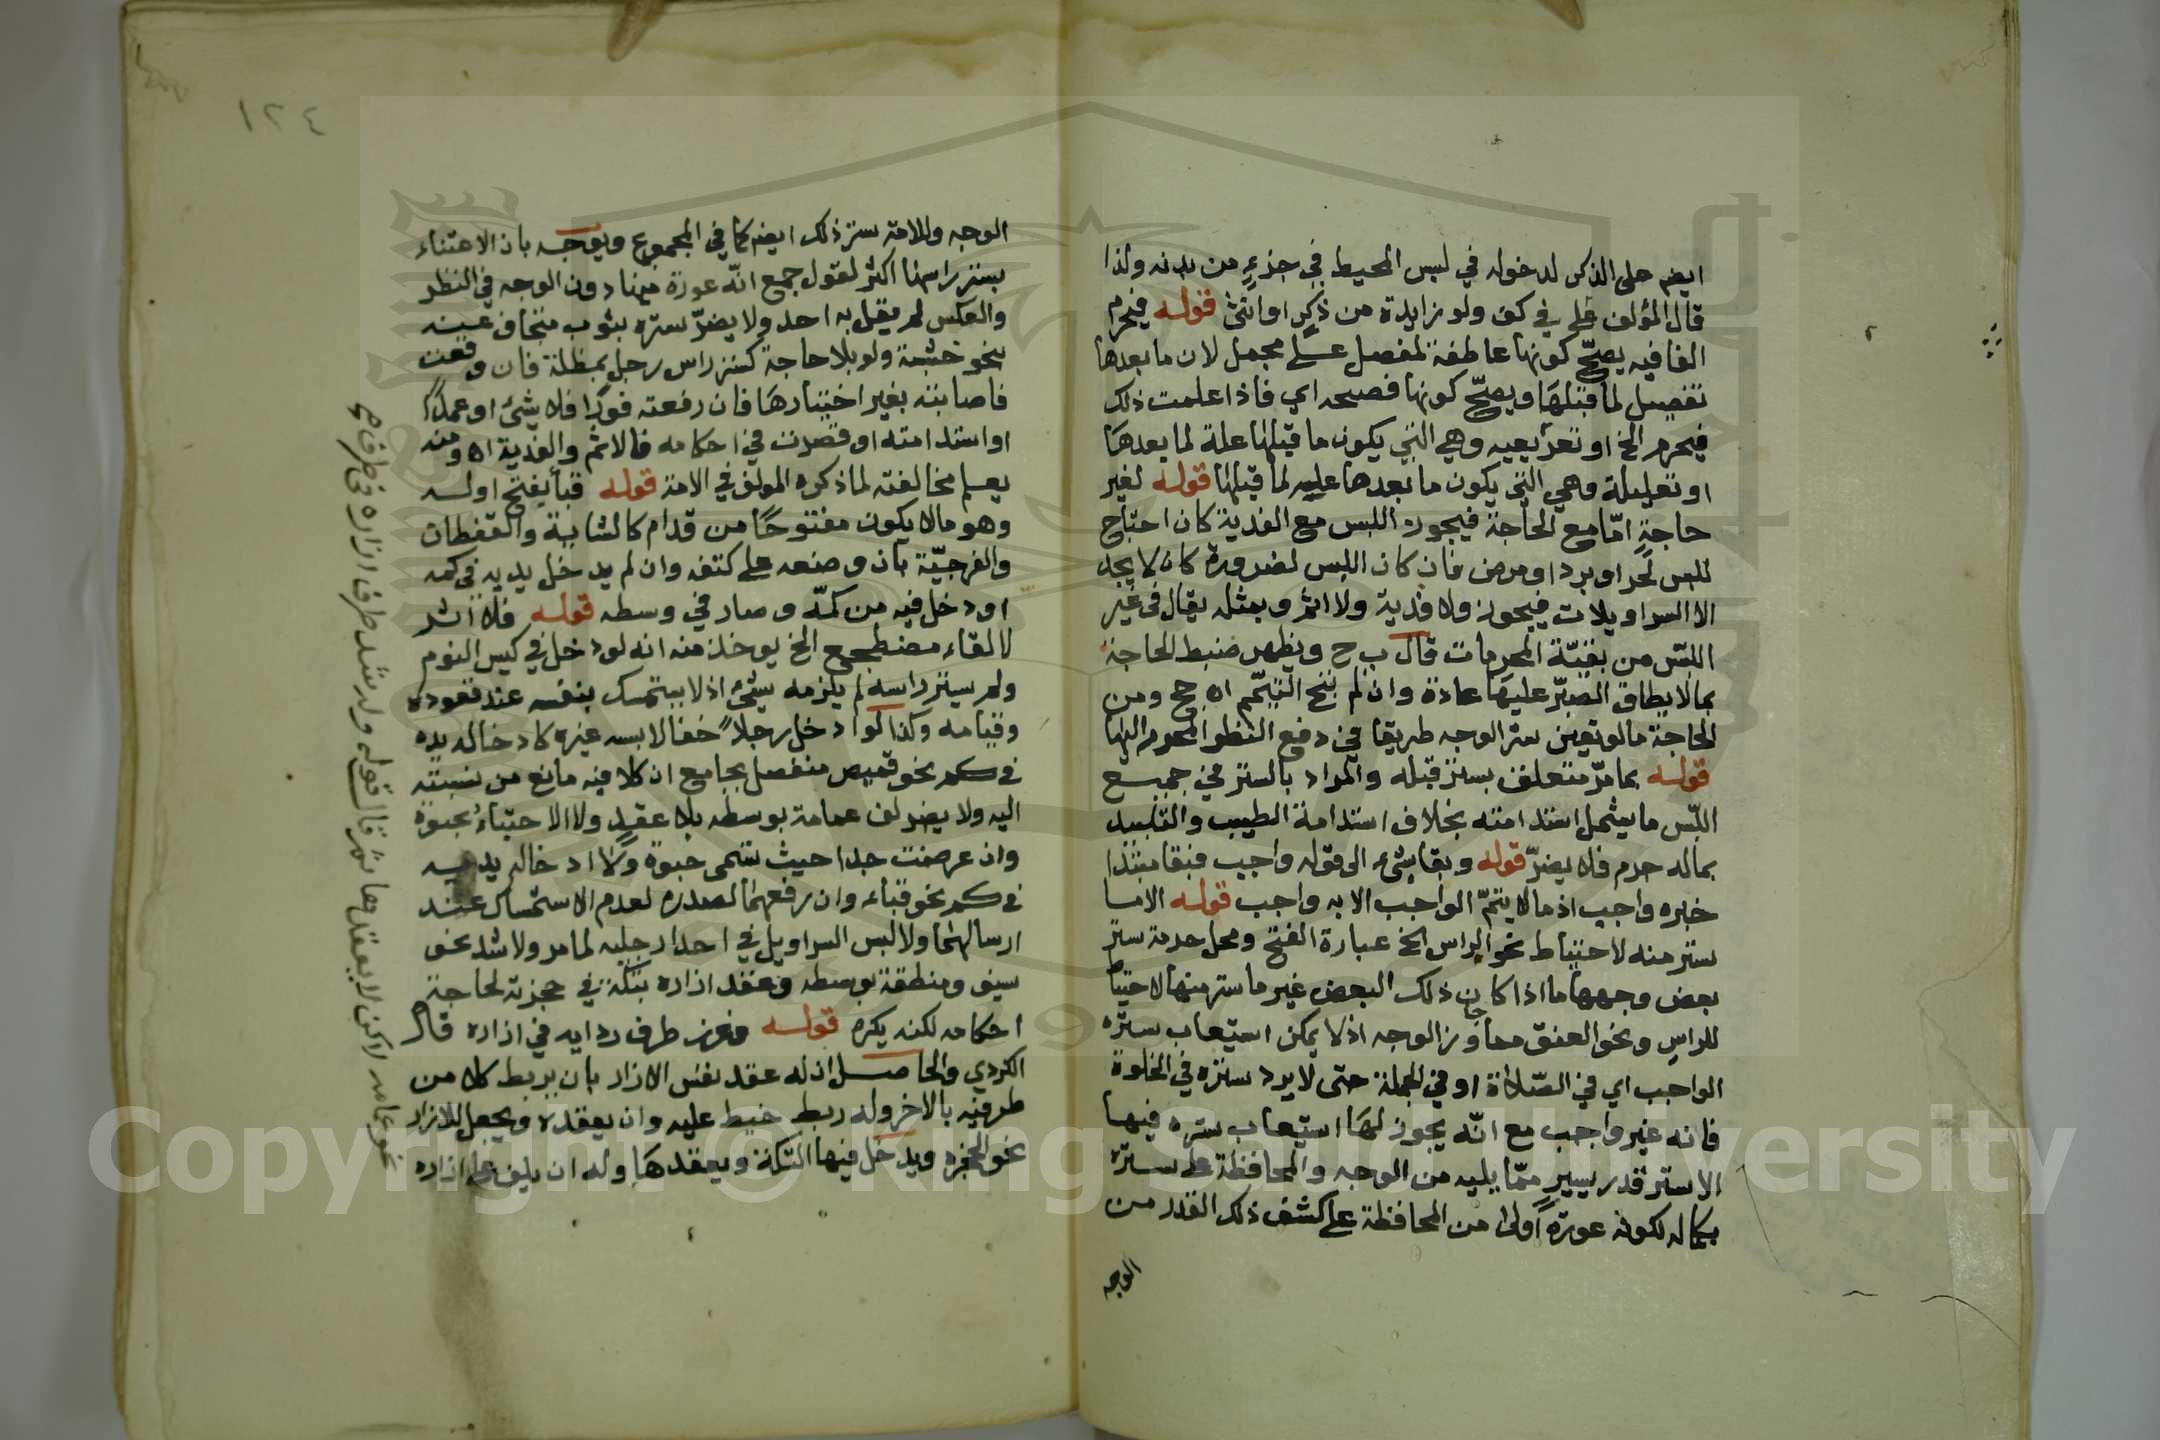 ايضم على الذكر لدخوله في لبس المحيط في جزء من بدنه ولذا
قال المؤلف على في كف ولو زايدة من ذكر او انثى قوله فيحرم
الفا فيه يصح كونها عاطفة لمفصل على مجمل لان ما بعدها
تفصيل لما قبلها ويصح كونها فصيحه اي فاذا علمت ذلك
فيحرم الخ او تفريعيه وهي التي يكون ما قبلها علة لما بعدها
او تعليلة وهي التي يكون ما بعدها عليه لما قبلها قوله لغير
حاجة امّا مع الحاجة فيجوز اللبس مع الفدية كان احتاج
للبس لحر او برد او مرض فان كان اللبس لضرورة كان لا يجد
الا السراويلات فيجوز ولا فدية ولا اثم وبمثله يقال في غير
اللبس من بقيّة المحرمات قال ب ج ويظهر ضبط الحاجة
بما لا يطاق الصبر عليها عادة وان لم يبح التيمّم اه حج ومن
الحاجة ما لو تعين ستر الوجه طريقا في دفع النظر المحرم اليها
قوله بما مرّ متعلق بستر قبله والمراد بالستر في جميع
اللبّس ما يشمل استدامته بخلاف استدامة الطيب والتلبيد
بماله جرم فلا يضرّ قوله وبقا شيء الى قوله واجب فبقا مبتدا
خبره واجب اذ ما لا يتمّ الواجب الا به واجب قوله الا ما
ستر منه لاحتياط نحو الراس الخ عبارة الفتح ومحل حرمة ستر
بعض وجهها ما اذا كان ذلك البعض غير ما ستر منها لاحتياط
للراس ونحو العنق مما جاوز الوجه اذ لا يمكن استيعاب ستره
الواجب اي في الصّلاة او في الجملة حتى لا يرد ستره في الخلوة
فانه غير واجب مع انّه يجوز لها استيعاب ستره فيها
الا ستر قدر يسير ممّا يليه من الوجه والمحافظة على ستره
بكماله لكونه عورة اولى من المحافظة على كشف ذلك القدر من
الوجه
١٢٤
الوجه وللامة ستر ذلك ايضم كما في المجموع ويوجه بان الاعتناء
بستر راسها اكثر لقول جمع انّه عورة منها دون الوجه في النظر
والعكس لم يقل به احد ولا يضرّ ستره بثوب متجاف عنه
بنحو خشبة ولو بلا حاجة كستر راس رجل بمظلة فان وقعت
فاصابته بغير اختيارها فان رفعته فورا فلا شيء او عمدًا
او استدامته او قصرت في احكامه فالاثم والفدية اه ومنه
يعلم مخالفته لما ذكره المولف في الامة قوله قبأ بفتح اوله
وهو ما لا يكون مفتوحًا من قدام كالشابية والقفطان
والفرجيّة بان وضعه على كتفه وان لم يدخل يديه في كمه
او دخل فيه من كمّه وصار في وسطه قوله فلا اثر
لالقاء مضطجع الخ يوخذ منه انه لو دخل في كيس النوم
ولم يستر راسه لم يلزمه شيء اذ لا يستمسك بنفسه عند قعوده
وقيامه وكذا لو ادخل رجلاً خفا لابسه غيره كادخاله يده
في كم نحو قميص منفصل بجامع ان كلا فيه مانع من نسبته
اليه ولا يضر لف عمامة بوسطه بلا عقد ولا الاحتباء بحبوة
وان عرضت جدا حيث تسمى حبوة ولا ادخاله يديه
في كم نحو قباء وان رفعهما لصدره لعدم الاستمساك عند
ارسالهما ولا لبس السراويل في احدا رجليه لما مر ولا شد نحو
سيف ومنطقة بوسطه وعقد ازاره بتكة في حجزته لحاجة
احكامه لكنه يكره قوله وغرز طرف ردايه في ازاره قال
الكردي والحاصل ان له عقد نفس الازار بان يربط كلا من
طرفيه بالاخر وله ربط خيط عليه وان يعقده ويجعل للازار
نحو الحجزه ويدخل فيها التكة ويعقدها وله ان يلف على ازاره
نحو عمامه لكن لا يعقدها ثم قال قوله وله شد طرف ازاره في طرف
Copyright © King Saud University